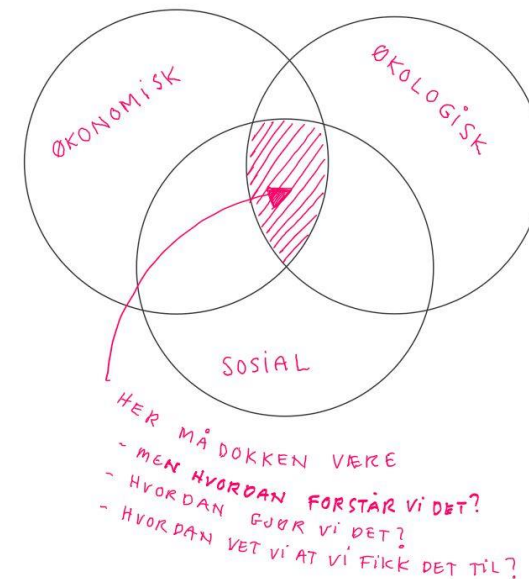 ØKONOMISK
ØKOLOGISK
SOSIAL
HER MÅ DOKKEN VÆRE
- MEN HVORDAN FORSTÅR VI DET?
- HVORDAN GJØR VI DET?
- HVORDAN VET VI AT VI FIKK DET TIL?